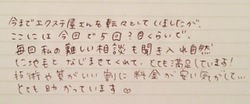 今までエクステ屋さんを転々としていましたが、
ここには今回で5回?目くらいで、
毎回私の難しい相談も聞き入れ自然
に地毛となじませてくれて、とても満足しています!
技術や質がいい割に料金が安い気がしてい
とても助かっています♡